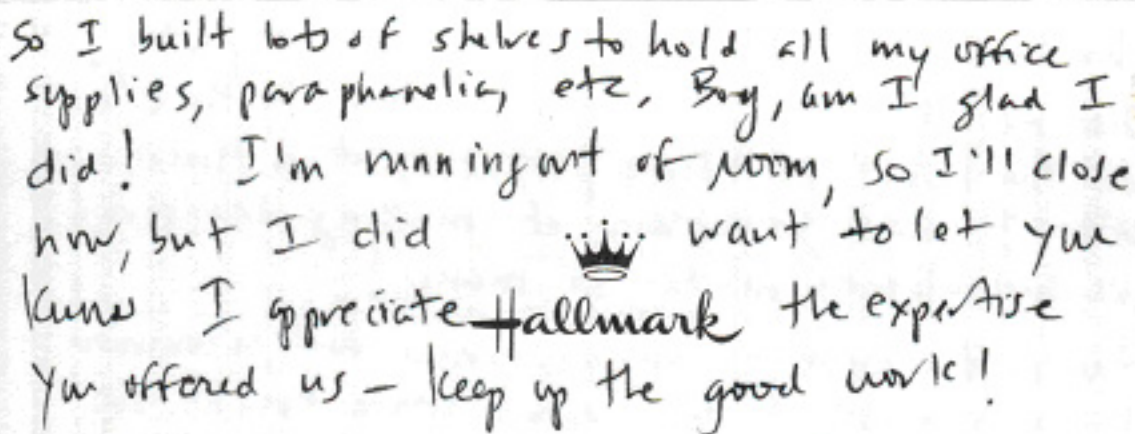 So I built lots of shelves to hold all my office
supplies, paraphanelia, etc. Boy, am I glad I
did! I'm running out of room, so I'll close
now, but I did want to let you
know I appreciate Hallmark the expertise
you offered us – keep up the good work!